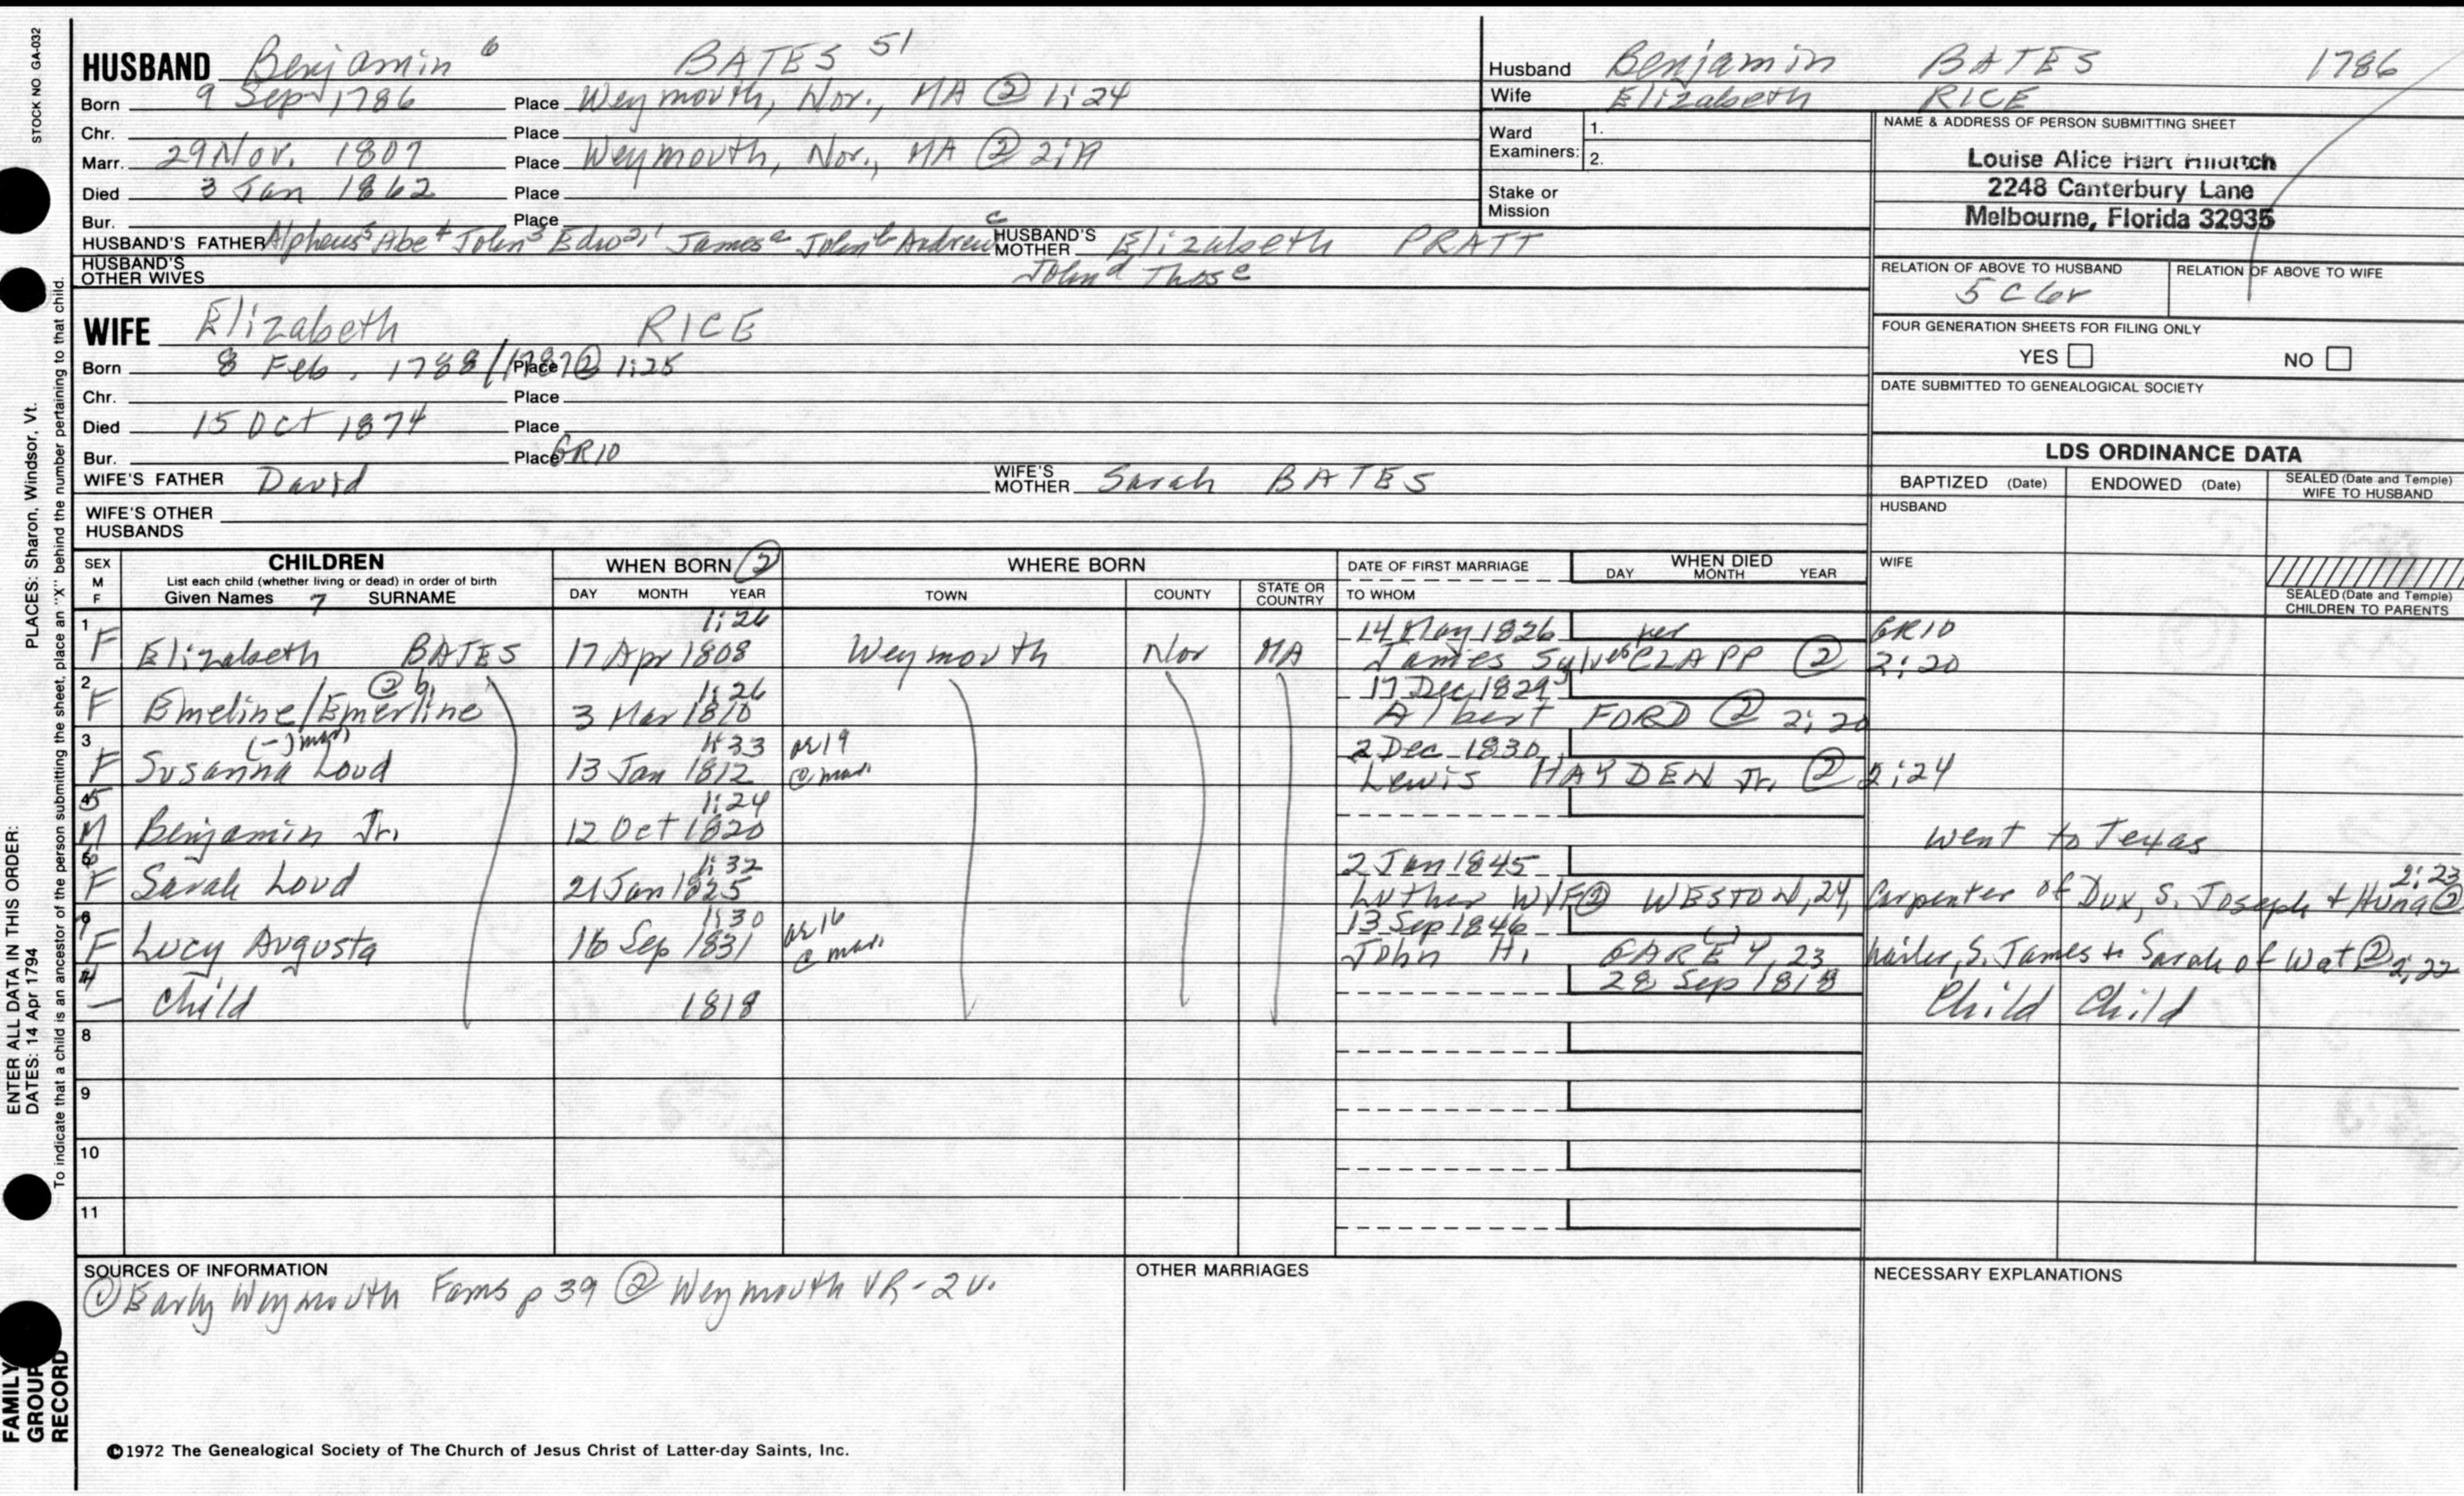 STOCK NO. GA-032
HUSBAND Benjamin 6 BATES 51
Born 9 Sep 1786 Place Weymouth, Nor., MA @ 1:24
Chr. Place
Marr. 29 Nov. 1807 Place Weymouth, Nor., MA ② 2:19
Died 3 Jan 1862 Place
Bur. Place
HUSBAND'S FATHER Alpheus 5 Abe 4 John 3 Edw 2,1 James a John b Andrew c HUSBAND'S MOTHER Elizabeth PRATT
HUSBAND'S OTHER WIVES John d Thos e
Husband Benjamin BATES 1786
Wife Elizabeth RICE
Ward Examiners: 1.
2.
Stake or Mission
NAME & ADDRESS OF PERSON SUBMITTING SHEET
Louise Alice Hart Hilditch
2248 Canterbury Lane
Melbourne, Florida 32935
RELATION OF ABOVE TO HUSBAND RELATION OF ABOVE TO WIFE
5 C 6r
FOUR GENERATION SHEETS FOR FILING ONLY
YES NO
DATE SUBMITTED TO GENEALOGICAL SOCIETY
WIFE Elizabeth RICE
Born 8 Feb. 1788/1787 Place ② 1:25
Chr. Place
Died 15 Oct 1874 Place
Bur. Place GR10
WIFE'S FATHER David WIFE'S MOTHER Sarah BATES
WIFE'S OTHER HUSBANDS
LDS ORDINANCE DATA
BAPTIZED (Date) ENDOWED (Date) SEALED (Date and Temple) WIFE TO HUSBAND
HUSBAND
WIFE
SEALED (Date and Temple) CHILDREN TO PARENTS
SEX M F
CHILDREN
List each child (whether living or dead) in order of birth
Given Names 7 SURNAME
WHEN BORN ②
DAY MONTH YEAR
WHERE BORN
TOWN COUNTY STATE OR COUNTRY
DATE OF FIRST MARRIAGE
TO WHOM
WHEN DIED
DAY MONTH YEAR
1 1:26 14 May 1826 GR10
F Elizabeth BATES 17 Apr 1808 Weymouth Nor MA James Sylves CLAPP ② 2:20
2 @ b. 1:26 17 Dec 1829
F Emeline/Emerline 3 Mar 1810 Albert FORD ② 2:20
3 (-) mar. 1:33 ae 19 2 Dec 1830
F Susanna Loud 13 Jan 1812 @ mar. Lewis HAYDEN Jr. ② 2:24
5 1:24
M Benjamin Jr. 12 Oct 1820 Went to Texas
6 1:32 2 Jan 1845 2:23
F Sarah Loud 21 Jan 1825 Luther W/F② WESTON, 24, Carpenter of Dux, S. Joseph + Huna ②
7 1:30 ae 16 13 Sep 1846
F Lucy Augusta 16 Sep 1831 @ mar. John H. CAREY, 23 S. James + Sarah of Wat ② 2:22
4 28 Sep 1818
— Child 1818 Child Child
8
9
10
11
SOURCES OF INFORMATION
① Early Weymouth Fams p 39 ② Weymouth VR - 2 v.
OTHER MARRIAGES
NECESSARY EXPLANATIONS
©1972 The Genealogical Society of The Church of Jesus Christ of Latter-day Saints, Inc.
PLACES: Sharon, Windsor, Vt.
To indicate that a child is an ancestor of the person submitting the sheet, place an "X" behind the number pertaining to that child.
ENTER ALL DATA IN THIS ORDER:
DATES: 14 Apr 1794
FAMILY GROUP RECORD